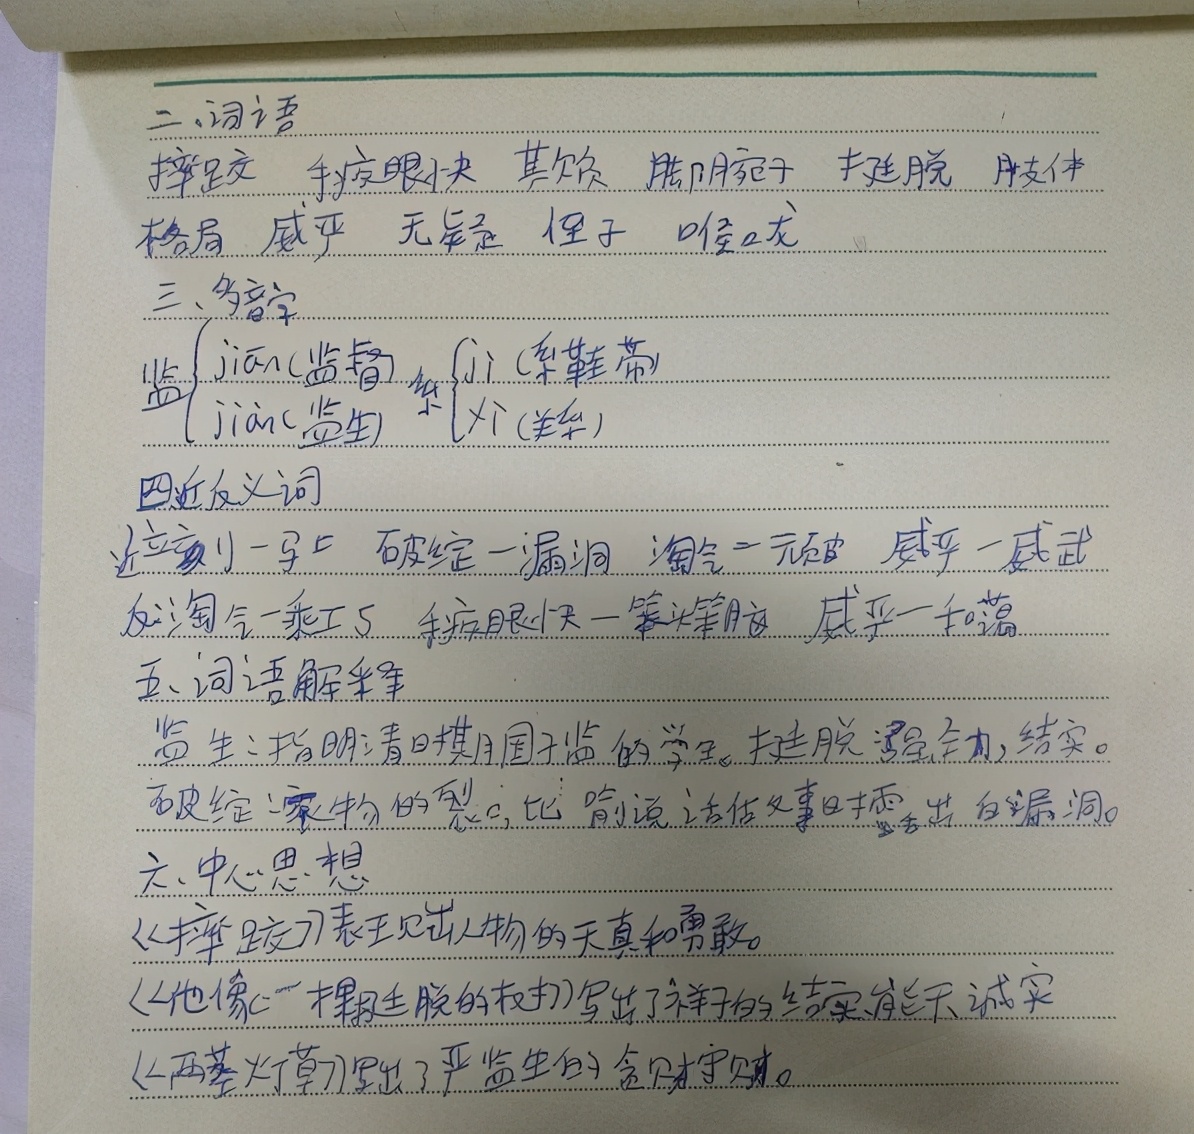 二、词语
摔跤 手疾眼快 其欠负 脚腕子 挺脱 肢体
格局 威严 无疑 侄子 喉咙
三、多音字
监 jiān(监督) 系 jì (系鞋带)
jiàn(监生) xì (关系)
四近反义词
近立刻一马上 破绽一漏洞 淘气一顽皮 威严一威武
反:淘气一乖巧 手疾眼快一笨头笨脑 威严一和蔼
五、词语解释
监生:指明清时期国子监的学生。挺脱:强劲有力,结实。
破绽:衣物的裂口,比喻说话做事时露出的漏洞。
六、中心思想
《摔跤》表现出人物的天真和勇敢。
《他像一棵挺脱的树》写出了祥子的结实能干诚实
《两茎灯草》写出了严监生的贪财守财。